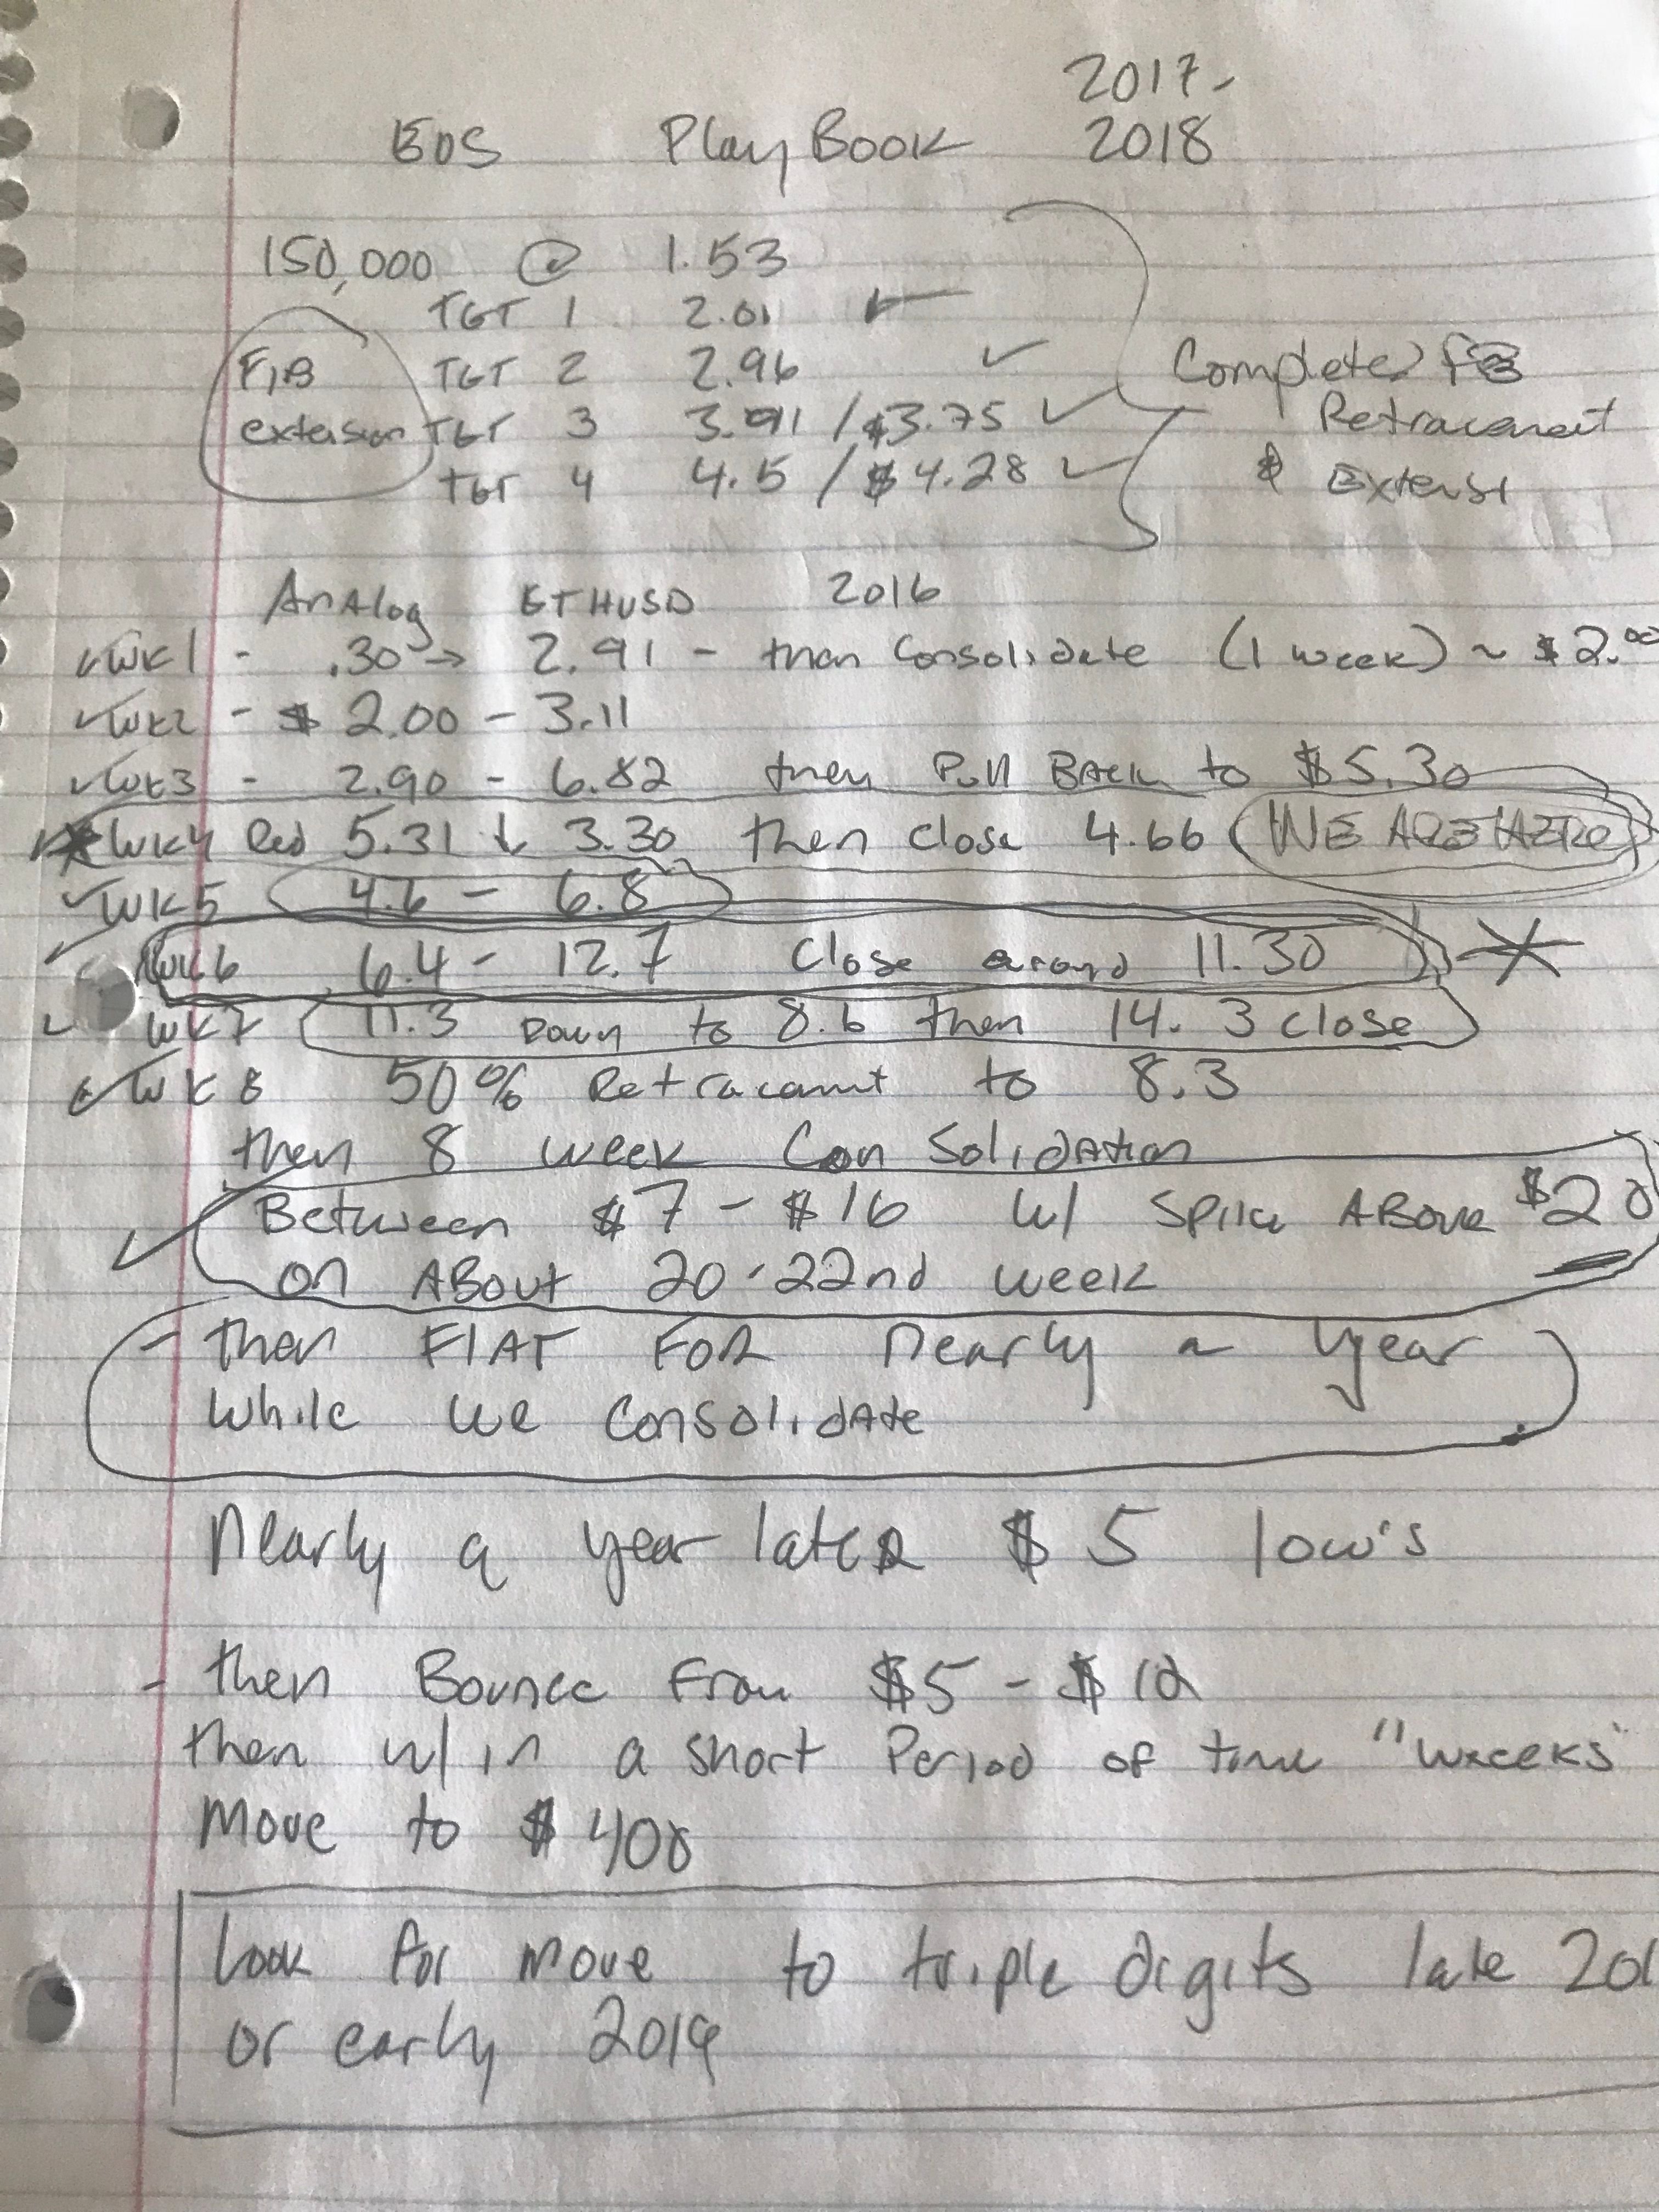 2017-
EOS Play Book 2018
150,000 @ 1.53
TGT 1 2.01
FIB TGT 2 2.96 Completed
extension TGT 3 3.91 / $3.75 Retracement
TGT 4 4.5 / $4.28 & Extensi
Analog ETHUSD 2016
WK1 - .30 → 2.91 - then Consolidate (1 week) ~ $2.00
WK2 - $ 2.00 - 3.11
WK3 - 2.90 - 6.82 then Pull Back to $5.30
WK4 Red 5.31 ↓ 3.30 then close 4.66 WE ARE HERE
WK5 4.6 - 6.8
WK6 6.4 - 12.7 Close around 11.30
WK7 11.3 Down to 8.6 then 14.3 close
WK 8 50% Retracemnt to 8.3
then 8 week Consolidation
Between $7 - $16 w/ Spike Above $20
on About 20-22nd week
- then FlAT FOR nearly a year
While we Consolidate
Nearly a year later $5 low's
- then Bounce From $5 - $12
then w/in a short Period of time "weeks"
Move to $400
Look for move to triple digits late 201
or early 2019